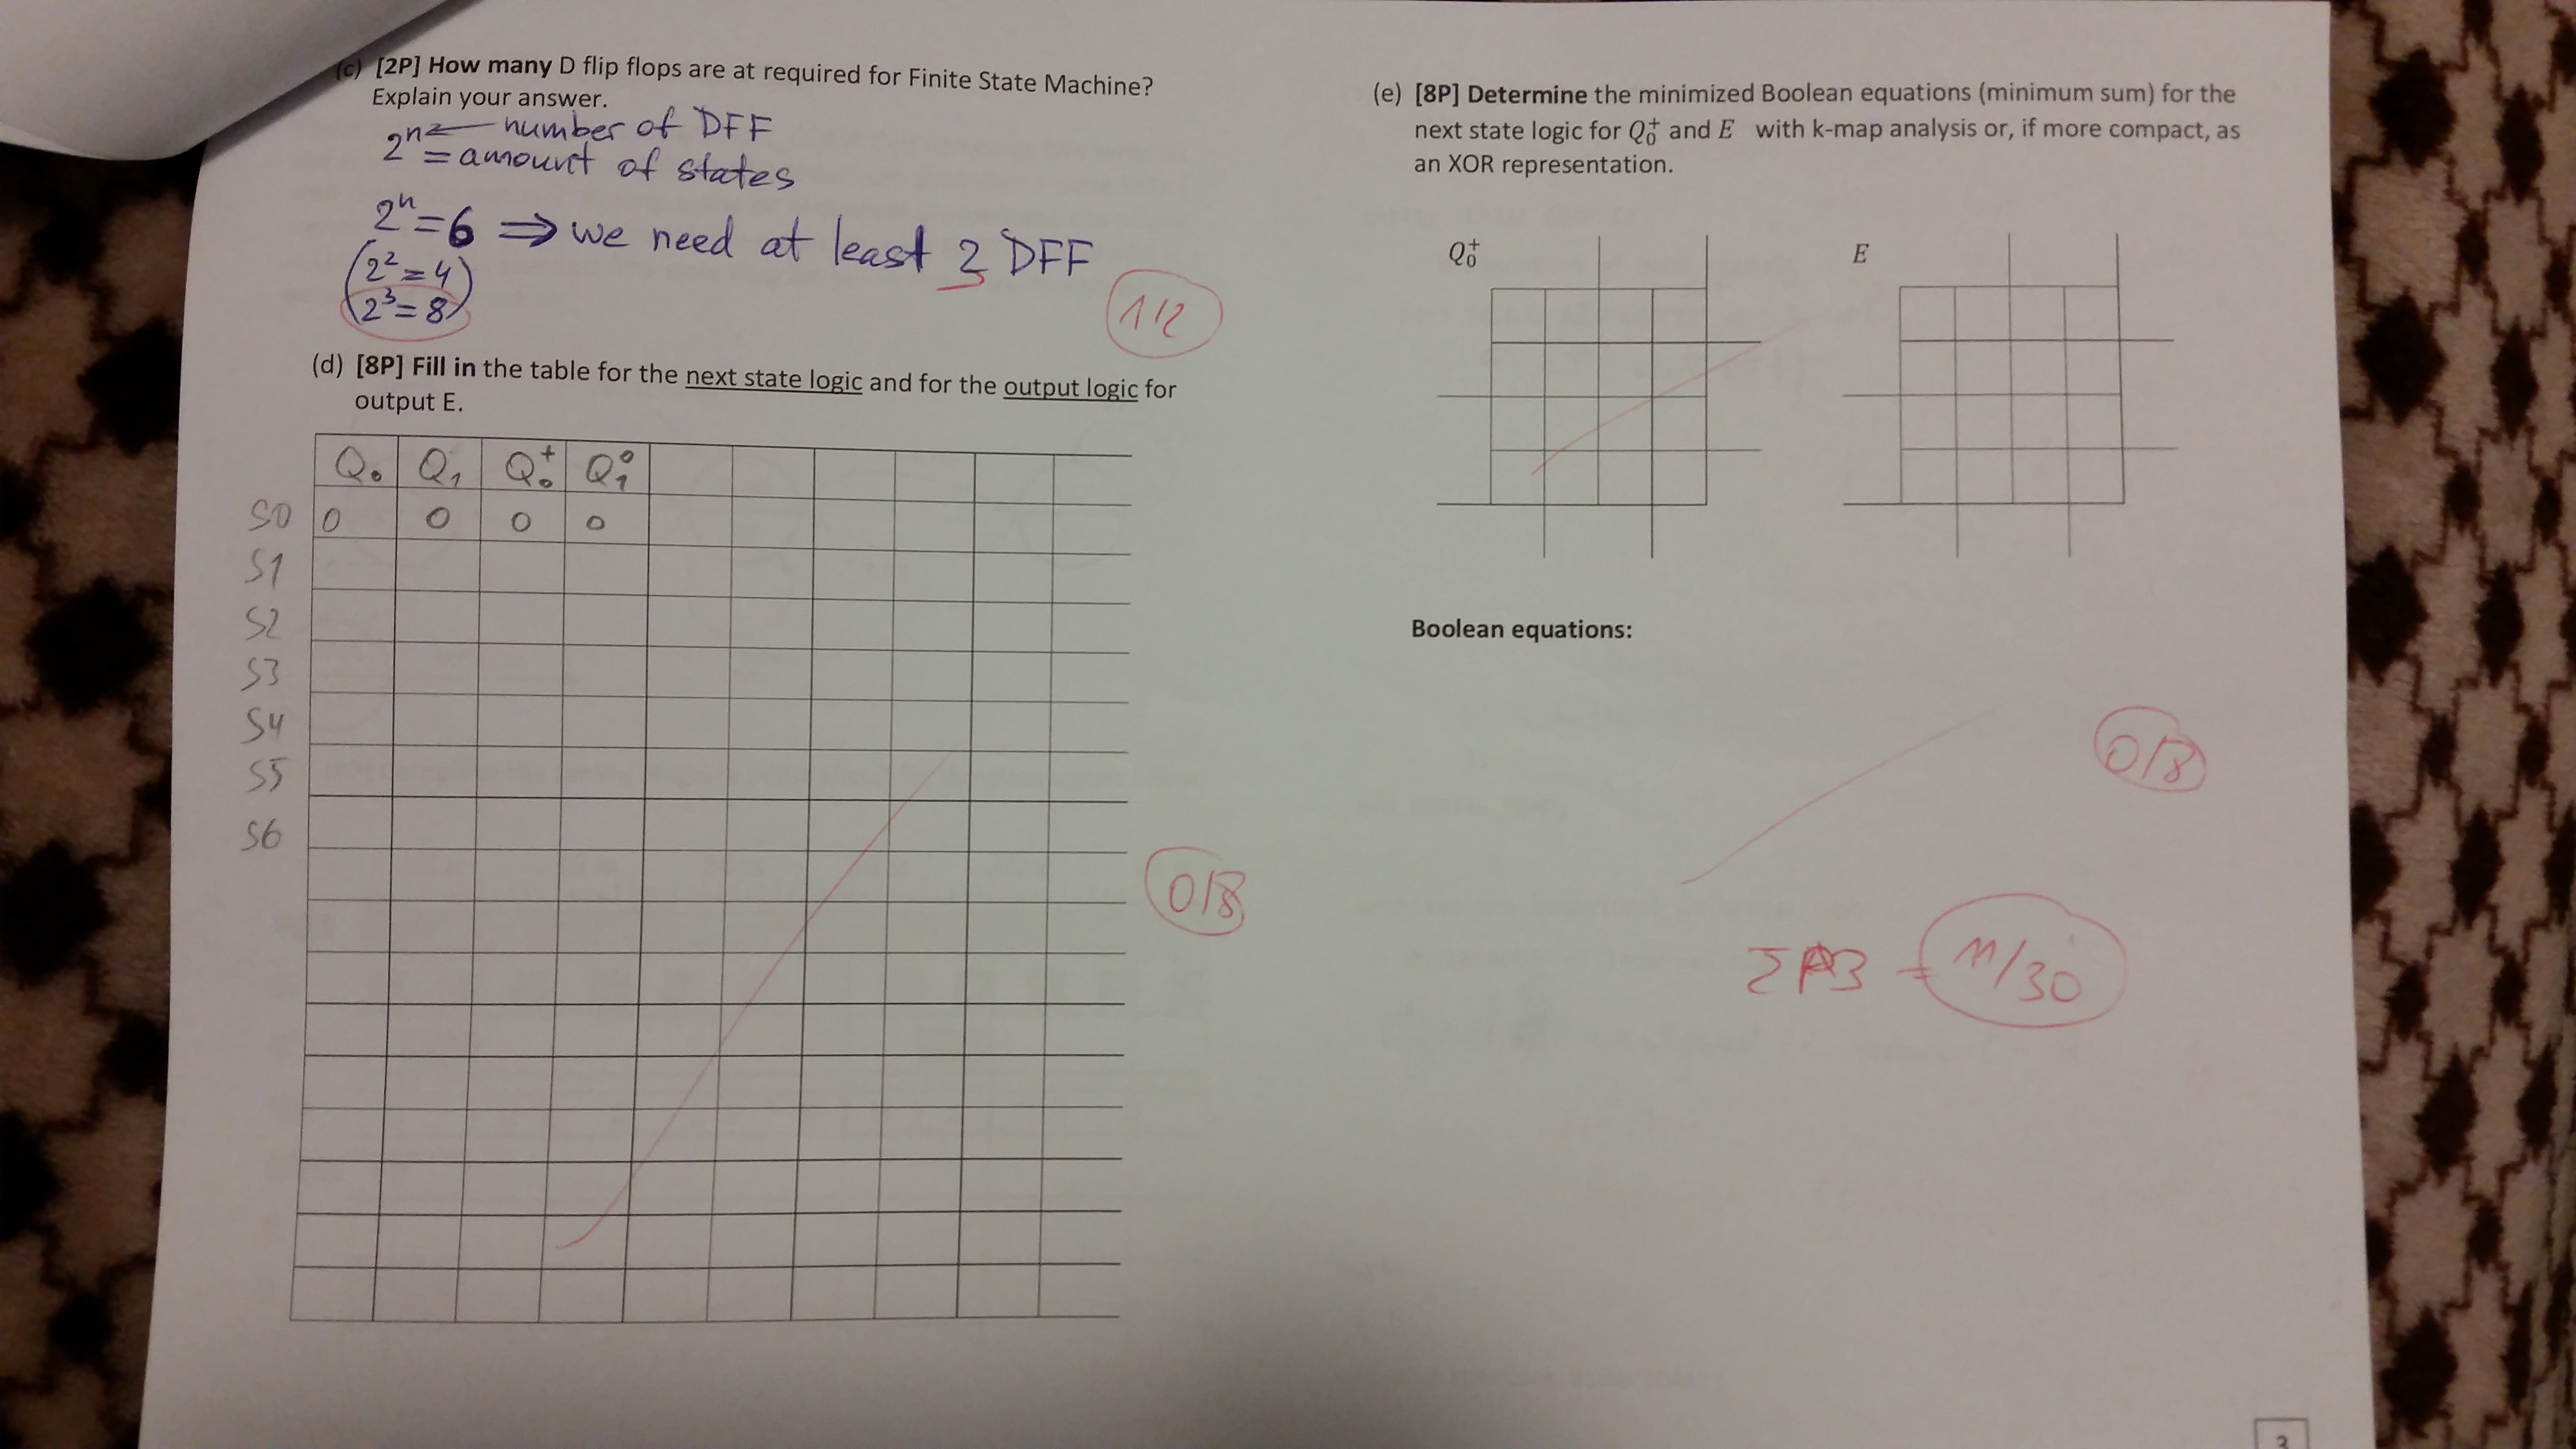 (c) [2P] How many D flip flops are at required for Finite State Machine?
Explain your answer.
2ⁿ ← number of DFF
2ⁿ = amount of states
2ⁿ = 6 ⇒ we need at least 2 DFF
(2² = 4
2³ = 8)
1/2
(d) [8P] Fill in the table for the next state logic and for the output logic for
output E.
Q₀ Q₁ Q₀⁺ Q₁⁰
S0 0 0 0 0
S1
S2
S3
S4
S5
S6
0/8
(e) [8P] Determine the minimized Boolean equations (minimum sum) for the
next state logic for Q₀⁺ and E with k-map analysis or, if more compact, as
an XOR representation.
Q₀⁺ E
Boolean equations:
0/8
Σ A3 = 11/30
3